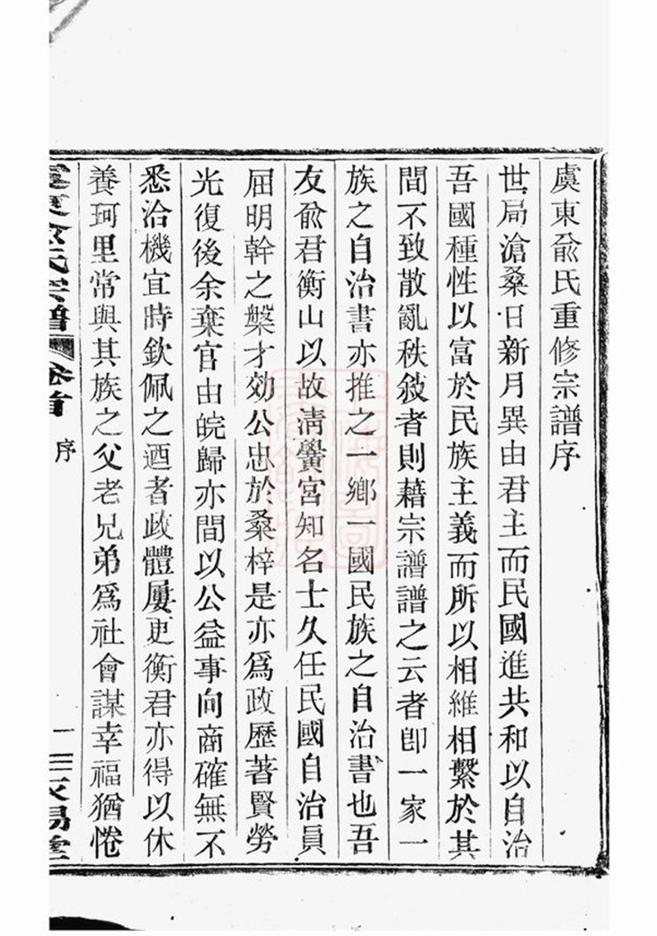 虞東俞氏重修宗譜序
世局滄桑日新月異由君主而民國進共和以自治
吾國種性以富於民族主義而所以相維相繫於其
間不致散亂秩敘者則藉宗譜譜之云者卽一家一
族之自治書亦推之一鄉一國民族之自治書也吾
友俞君衡山以故淸黌宮知名士久任民國自治員
屈明幹之槃才効公忠於桑梓是亦爲政歷著賢勞
光復後余棄官由皖歸亦間以公益事向商確無不
悉洽機宜時欽佩之迺者政體屢更衡君亦得以休
養珂里常與其族之父老兄弟爲社會謀幸福猶惓
氏宗譜 卷首 序 一